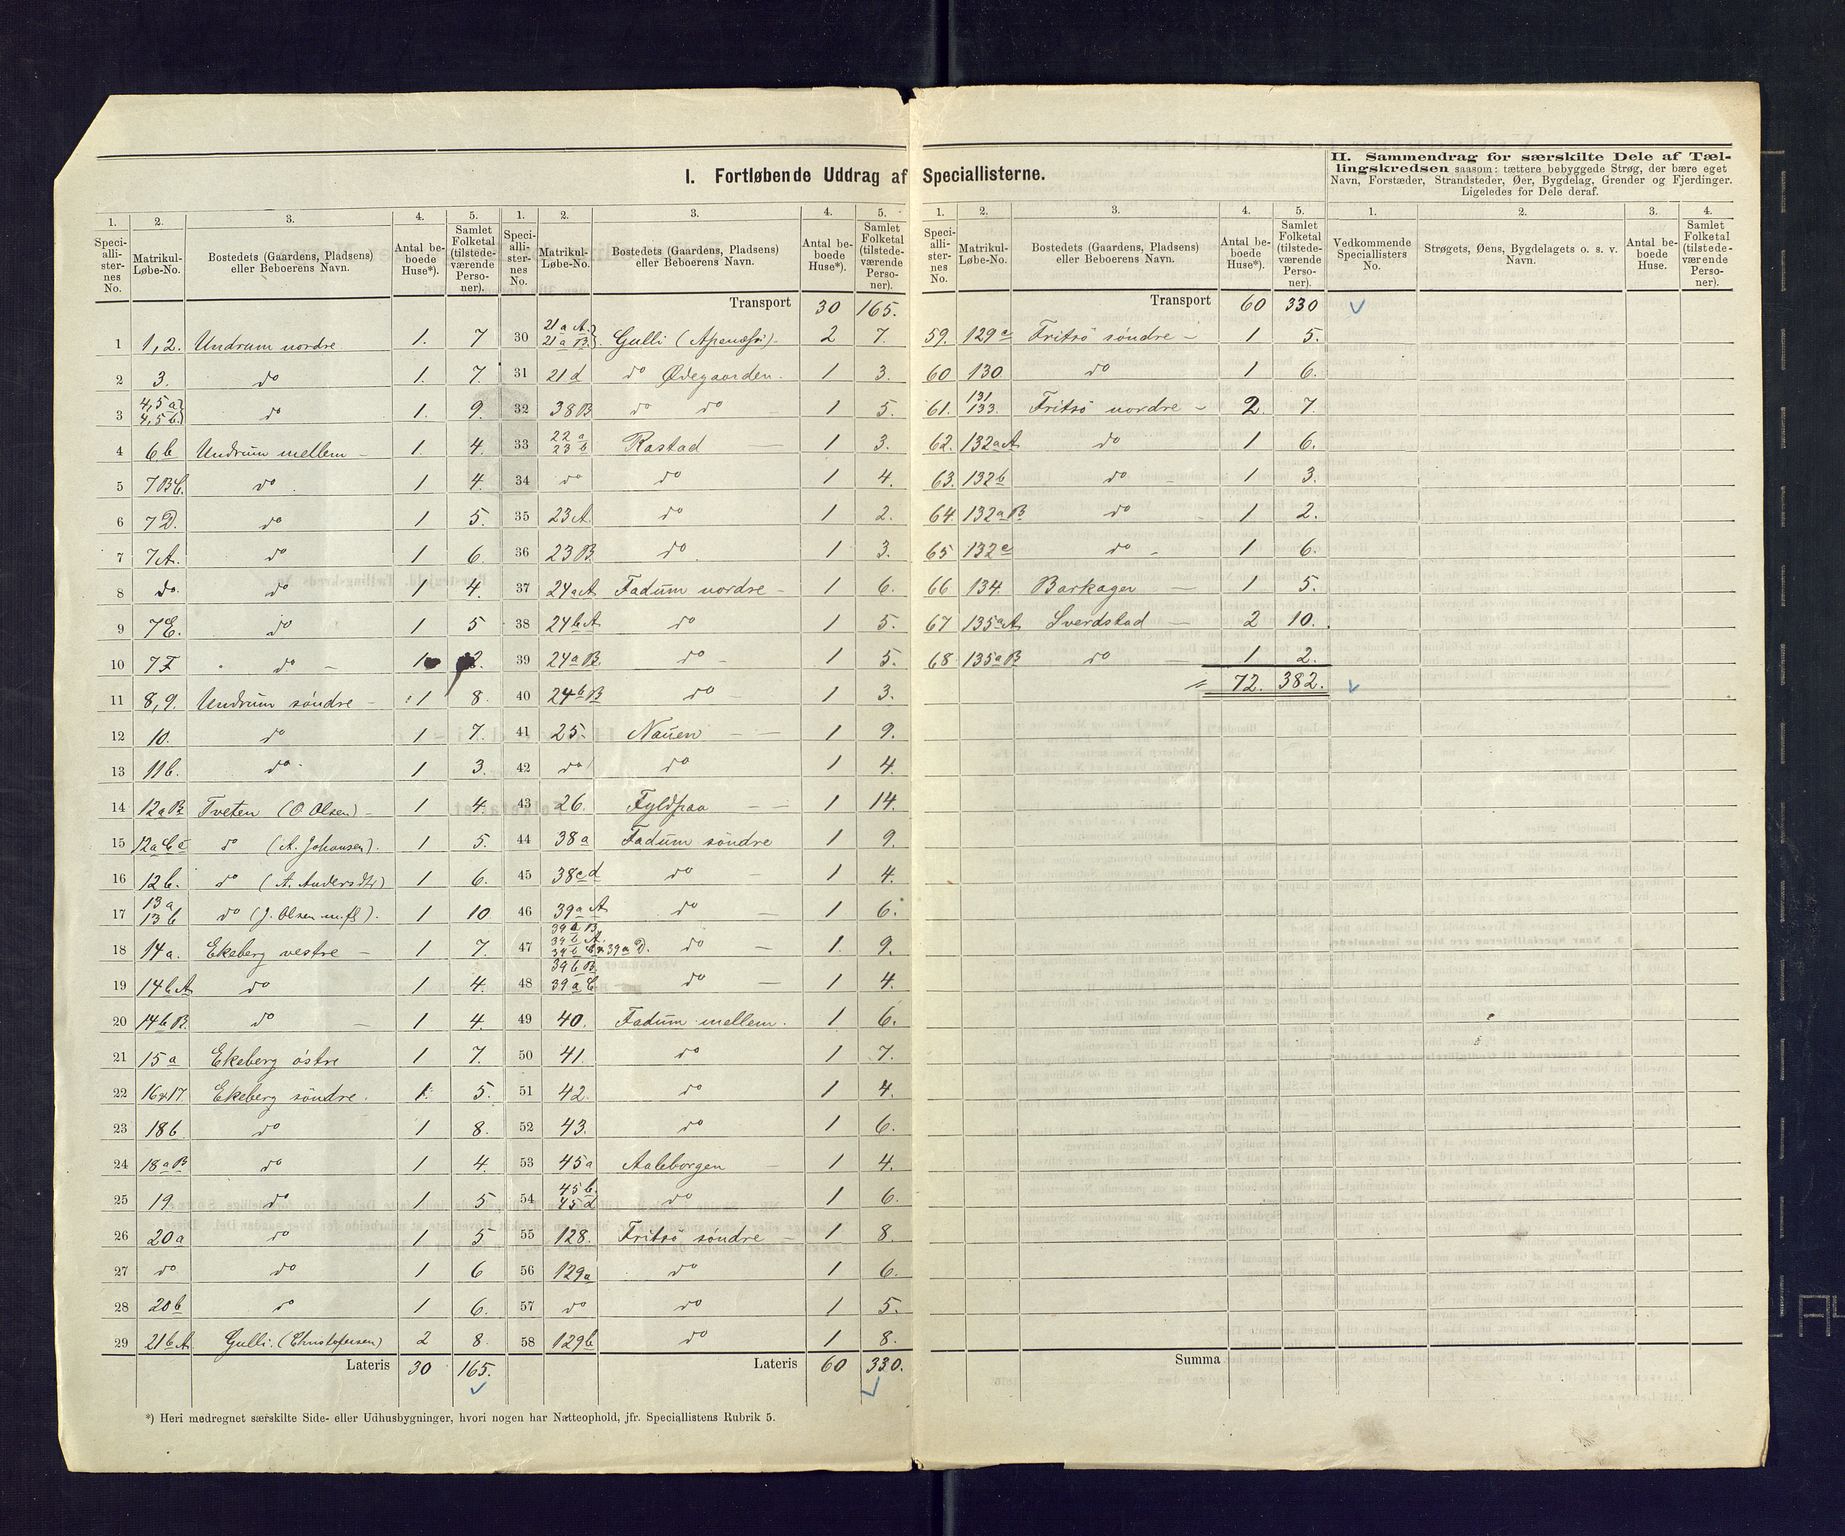 I. Fortløbende Uddrag af Speciallisterne.
II. Sammendrag for særskilte Dele af Tæl-
lingskredsen saasom: tættere bebyggede Strøg, der bære eget
Navn, Forstæder, Strandsteder, Øer, Bygdelag, Grender og Fjerdinger.
Ligeledes for Dele deraf.
1. 2. 3. 4. 5.
Speciallisternes No. Matrikul-Løbe-No. Bostedets (Gaardens, Pladsens) eller Beboerens Navn. Antal beboede Huse*). Samlet Folketal (tilstedeværende Personer).
1 1, 2. Undrum nordre 1. 7
2 3. do 1. 7.
3 4,5a 4,5b. do 1. 9.
4 6b Undrum mellem 1. 4.
5 7BC. do 1 4.
6 7D. do 1 5.
7 7A. do 1 6.
8 do. do 1 4.
9 7E. do 1 5
10 7F do 1 2.
11 8, 9. Undrum söndre 1 8.
12 10. do 1 7.
13 11b. do 1 3.
14 12aB Tveten (O Olsen) 1 4.
15 12aCc do (A. Johansen). 1 5.
16 12b. do (A. Andersdtr) 1 6.
17 13a 13b do (J. Olsen m.fl). 1 10
18 14a. Ekeberg vestre 1 7.
19 14bA do 1 4.
20 14bB. do 1 4.
21 15a Ekeberg östre 1 7.
22 16&17. Ekeberg söndre. 1. 5.
23 18b. do 1 8.
24 18aB do 1 4.
25 19. do 1 5
26 20a do 1 5
27 do do 1 6
28 20b do 1 6.
29 21bA Gulli. (Christofersen) 2 8.
Lateris 30 165.
1. 2. 3. 4. 5.
Speciallisternes No. Matrikul-Løbe-No. Bostedets (Gaardens, Pladsens) eller Beboerens Navn. Antal beboede Huse*). Samlet Folketal (tilstedeværende Personer).
Transport 30 165.
30 21aA. 21aB. Gulli 2 7.
31 21d do Ødegaarden. 1 3.
32 38B do do 1 5.
33 22a 23b Rastad 1 3.
34 do do 1 4.
35 23A do 1 2.
36 23B do 1 3.
37 24aA Fadum nordre 1 6.
38 24bA do 1 5.
39 24aB. do 1 5.
40 24bB do 1 3.
41 25. Nauen 1 9.
42 do do 1 4.
43 26. Fyldpaa 1 14.
44 38a Fadum söndre 1 9.
45 38cd do 1 4.
46 39aA do 1 6.
47 39aB 39bA. 39bC & 39aD. do 1 9.
48 39bB. 39aC do 1 4.
49 40. Fadum mellem. 1 6.
50 41. do 1 7.
51 42. do 1 4.
52 43. do 1 6.
53 45a Aaleborgen 1 4.
54 45b. 45d do 1 6.
55 128. Fritsö söndre 1 8.
56 129a do 1 6.
57 do do 1 5.
58 129b do 1 8.
Lateris 60 330.
1. 2. 3. 4. 5.
Speciallisternes No. Matrikul-Løbe-No. Bostedets (Gaardens, Pladsens) eller Beboerens Navn. Antal beboede Huse*). Samlet Folketal (tilstedeværende Personer).
Transport 60 330
59. 129c Fritsö söndre 1 5.
60 130. do 1 6.
61. 131 133. Fritsö nordre 2. 7.
62. 132aA do 1 6.
63. 132b do 1 3.
64. 132aB do 1 2.
65 132c do 1 6.
66 134. Barkager 1 5.
67 135aA Sverdstad 2 10.
68. 135aB do 1 2.
72. 382.
Summa
1. 2. 3. 4.
Vedkommende Speciallisters No. Strøgets, Øens, Bygdelagets o. s. v. Navn. Antal beboede Huse. Samlet Folketal (tilstedeværende Personer).
*) Heri medregnet særskilte Side- eller Udhusbygninger, hvori nogen har Natteophold, jfr. Speciallistens Rubrik 5.